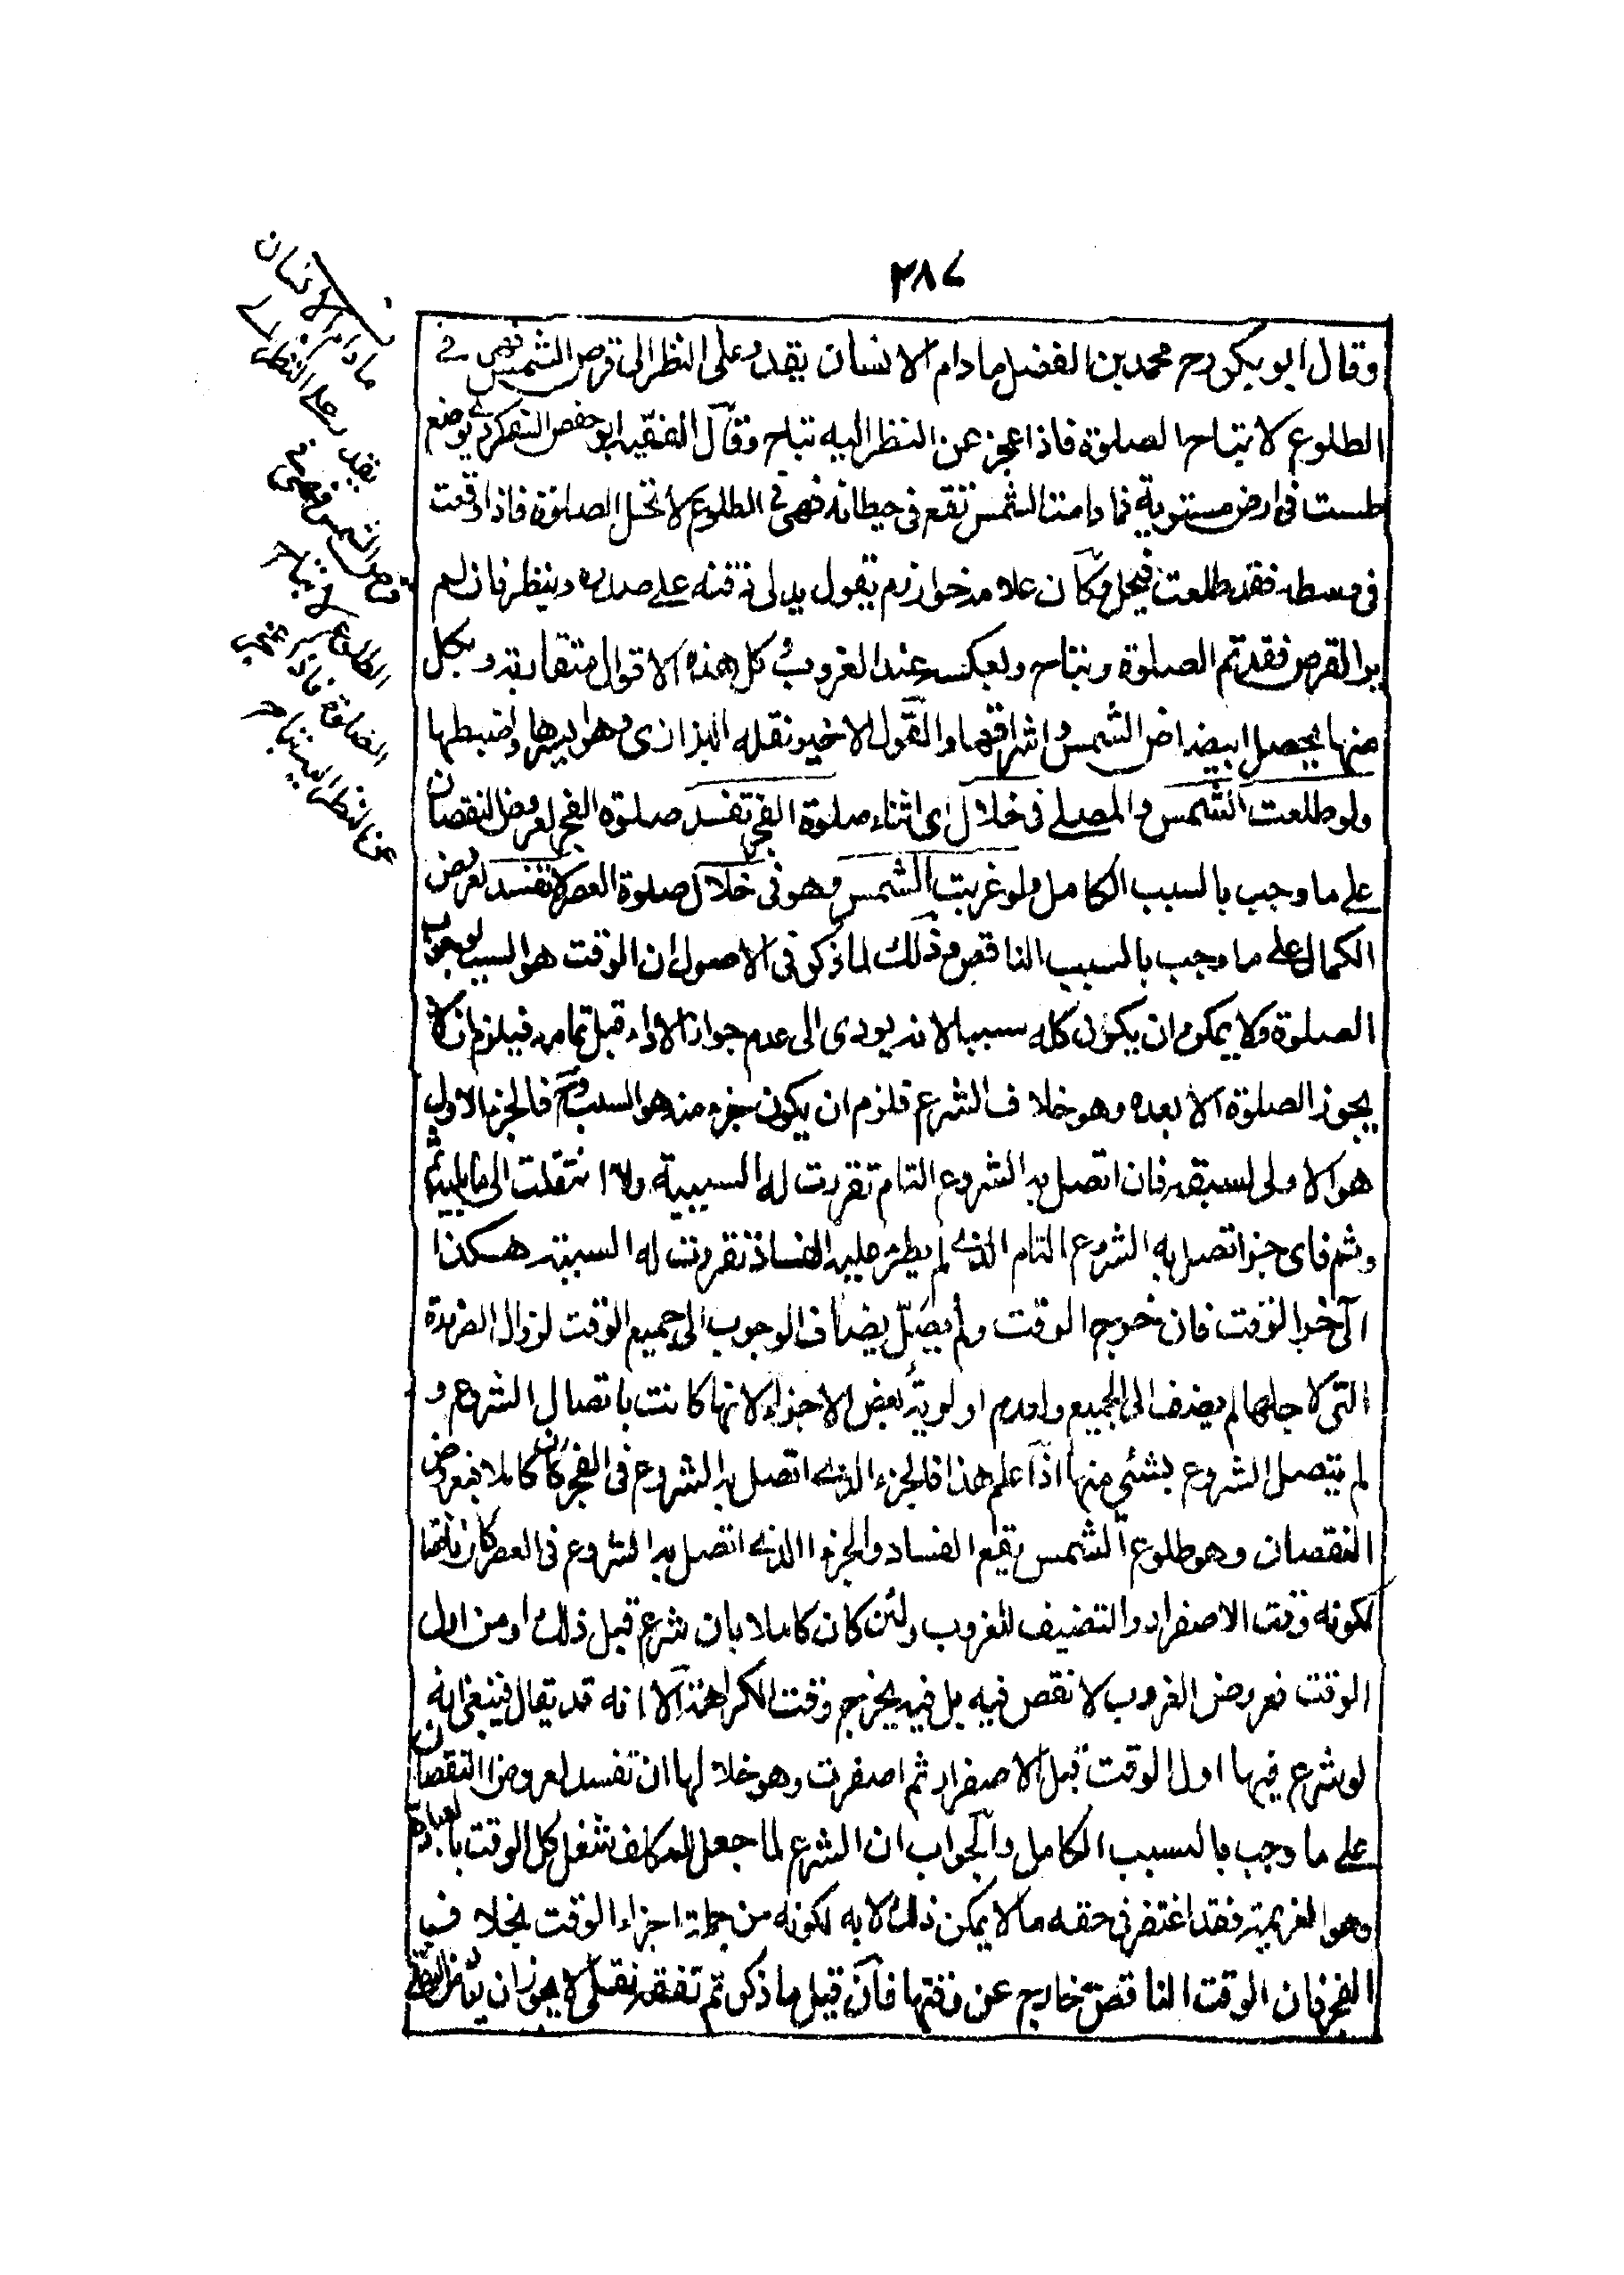 ٣٨٧
وقال ابو بكر رح محمد بن الفضل ما دام الانسان يقدر على النظر الى قرص الشمس فهى فى
الطلوع لا تباح الصلوة فاذا عجز عن النظر اليه تباح وقال الفقيه ابو حفص السفكردرى يوضع
طست فى ارض مستوية فما دامت الشمس تقع فى حيطانه فهى فى الطلوع لا تحل الصلوة فاذا وقعت
فى وسطه فقد طلعت فيحل وكان علامة خوارزم يقول يدلى ذقنه على صدره وينظر فان لم
ير القرص فقد تم الصلوة وتباح وبعكسه عند الغروب كل هذه الاقوال متقاربة وبكل
منها يحصل ابيضاض الشمس واشراقها والقول الاخير نقله البزازى وهو ايسرها واضبطها
ولو طلعت الشمس والمصلى فى خلال اى اثناء صلوة الفجر تفسد صلوة الفجر لعروض النقصان
على ما وجب بالسبب الكامل ولو غربت الشمس وهو فى خلال صلوة العصر لا تفسد لعروض
الكمال على ما وجب بالسبب الناقص وذلك لما ذكر فى الاصول ان الوقت هو السبب لوجوب
الصلوة ولا يمكن ان يكون كله سببا لانه يودى الى عدم جواز الاداء قبل تمامه فيلزم ان لا
يجوز الصلوة الا بعده وهو خلاف الشرع فلزم ان يكون جزء منه هو السبب وح فالجزء الاول
هو الاولى لسبقه فان اتصل به الشروع التام تقررت له السببية والا انتقلت الى ما يليه ثم
وثم فاى جزء اتصل به الشروع التام الذى لم يطرء عليه الفساد تقررت له السببية هكذا
الى اخر الوقت فان خرج الوقت ولم يصل يضاف الوجوب الى جميع الوقت لزوال الضرورة
التى لاجلها لم يضف الى الجميع ولعدم اولوية بعض الاجزاء لانها كانت باتصال الشروع و
لم يتصل الشروع بشئ منها اذا علم هذا فالجزء الذى اتصل به الشروع فى الفجر كان كاملا فبعروض
النقصان وهو طلوع الشمس يقع الفساد والجزء الذى اتصل به الشروع فى العصر كان ناقصا
لكونه وقت الاصفرار والتضيف للغروب ولئن كان كاملا بان شرع قبل ذلك او من اول
الوقت فعروض الغروب لا نقص فيه بل فيه يخرج وقت الكراهة الا انه قد يقال فينبغى انه
لو شرع فيها اول الوقت قبل الاصفرار ثم اصفرت وهو خلالها ان تفسد لعروض النقصان
على ما وجب بالسبب الكامل والجواب ان الشرع لما جعل للمكلف شغل كل الوقت بالعبادة
وهو العزيمة فقد اغتفر فى حقه ما لا يمكن ذلك الا به لكونه من جملة اجزاء الوقت بخلاف
الفجر فان الوقت الناقص خارج عن وقتها فان قيل ما ذكر ثم تفقه نقلى لا يجوز ان
ما دام الانسان
يقدر على النظر الى
قرص الشمس فهى فى
الطلوع لا تباح
الصلوة فاذا عجز
عن النظر اليه تباح